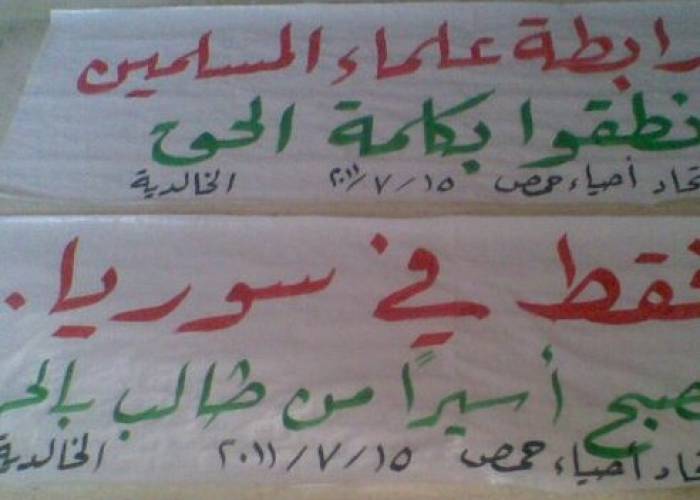 رابطة علماء المسلمين
نطقوا بكلمة الحق
اتحاد أحياء حمص ١٥/٧/٢٠١١ الخالدية
فقط في سوريا.
صبح أسيراً من طالب بالحر
اتحاد أحياء حمص ١٥/٧/٢٠١١ الخالدية